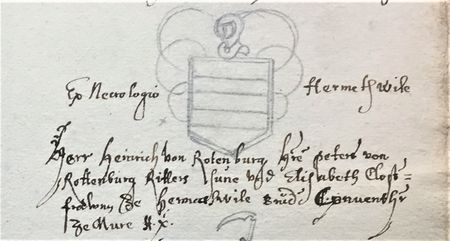 Ex Necrologio Hermethwile
Herr Heinrich von Rotenburg Hre peters von
Rottenburg Ritters sune vnd Elisabeth Clost=
frowen ze Hermathwile Conventhr
ze Mure